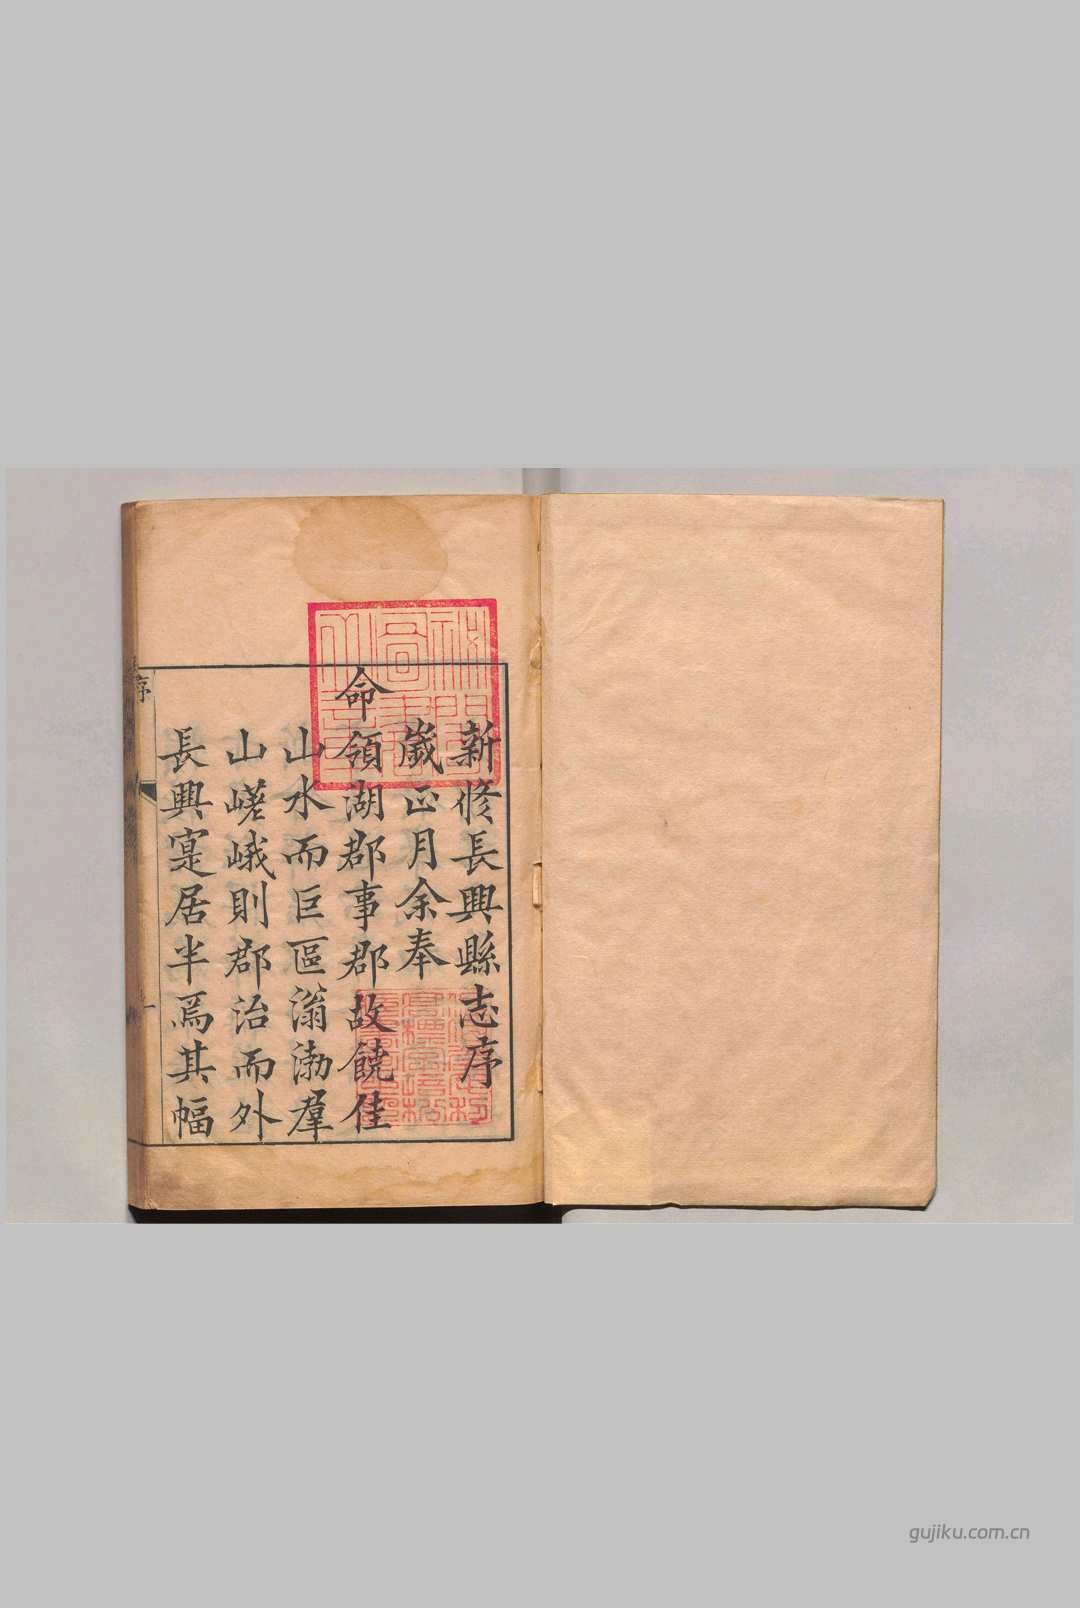 新修長興縣志序
歲正月余奉
命領湖郡事郡故饒佳
山水而巨區滃渤羣
山嵯峨則郡治而外
長興寔居半焉其幅
序
一
gujiku.com.cn